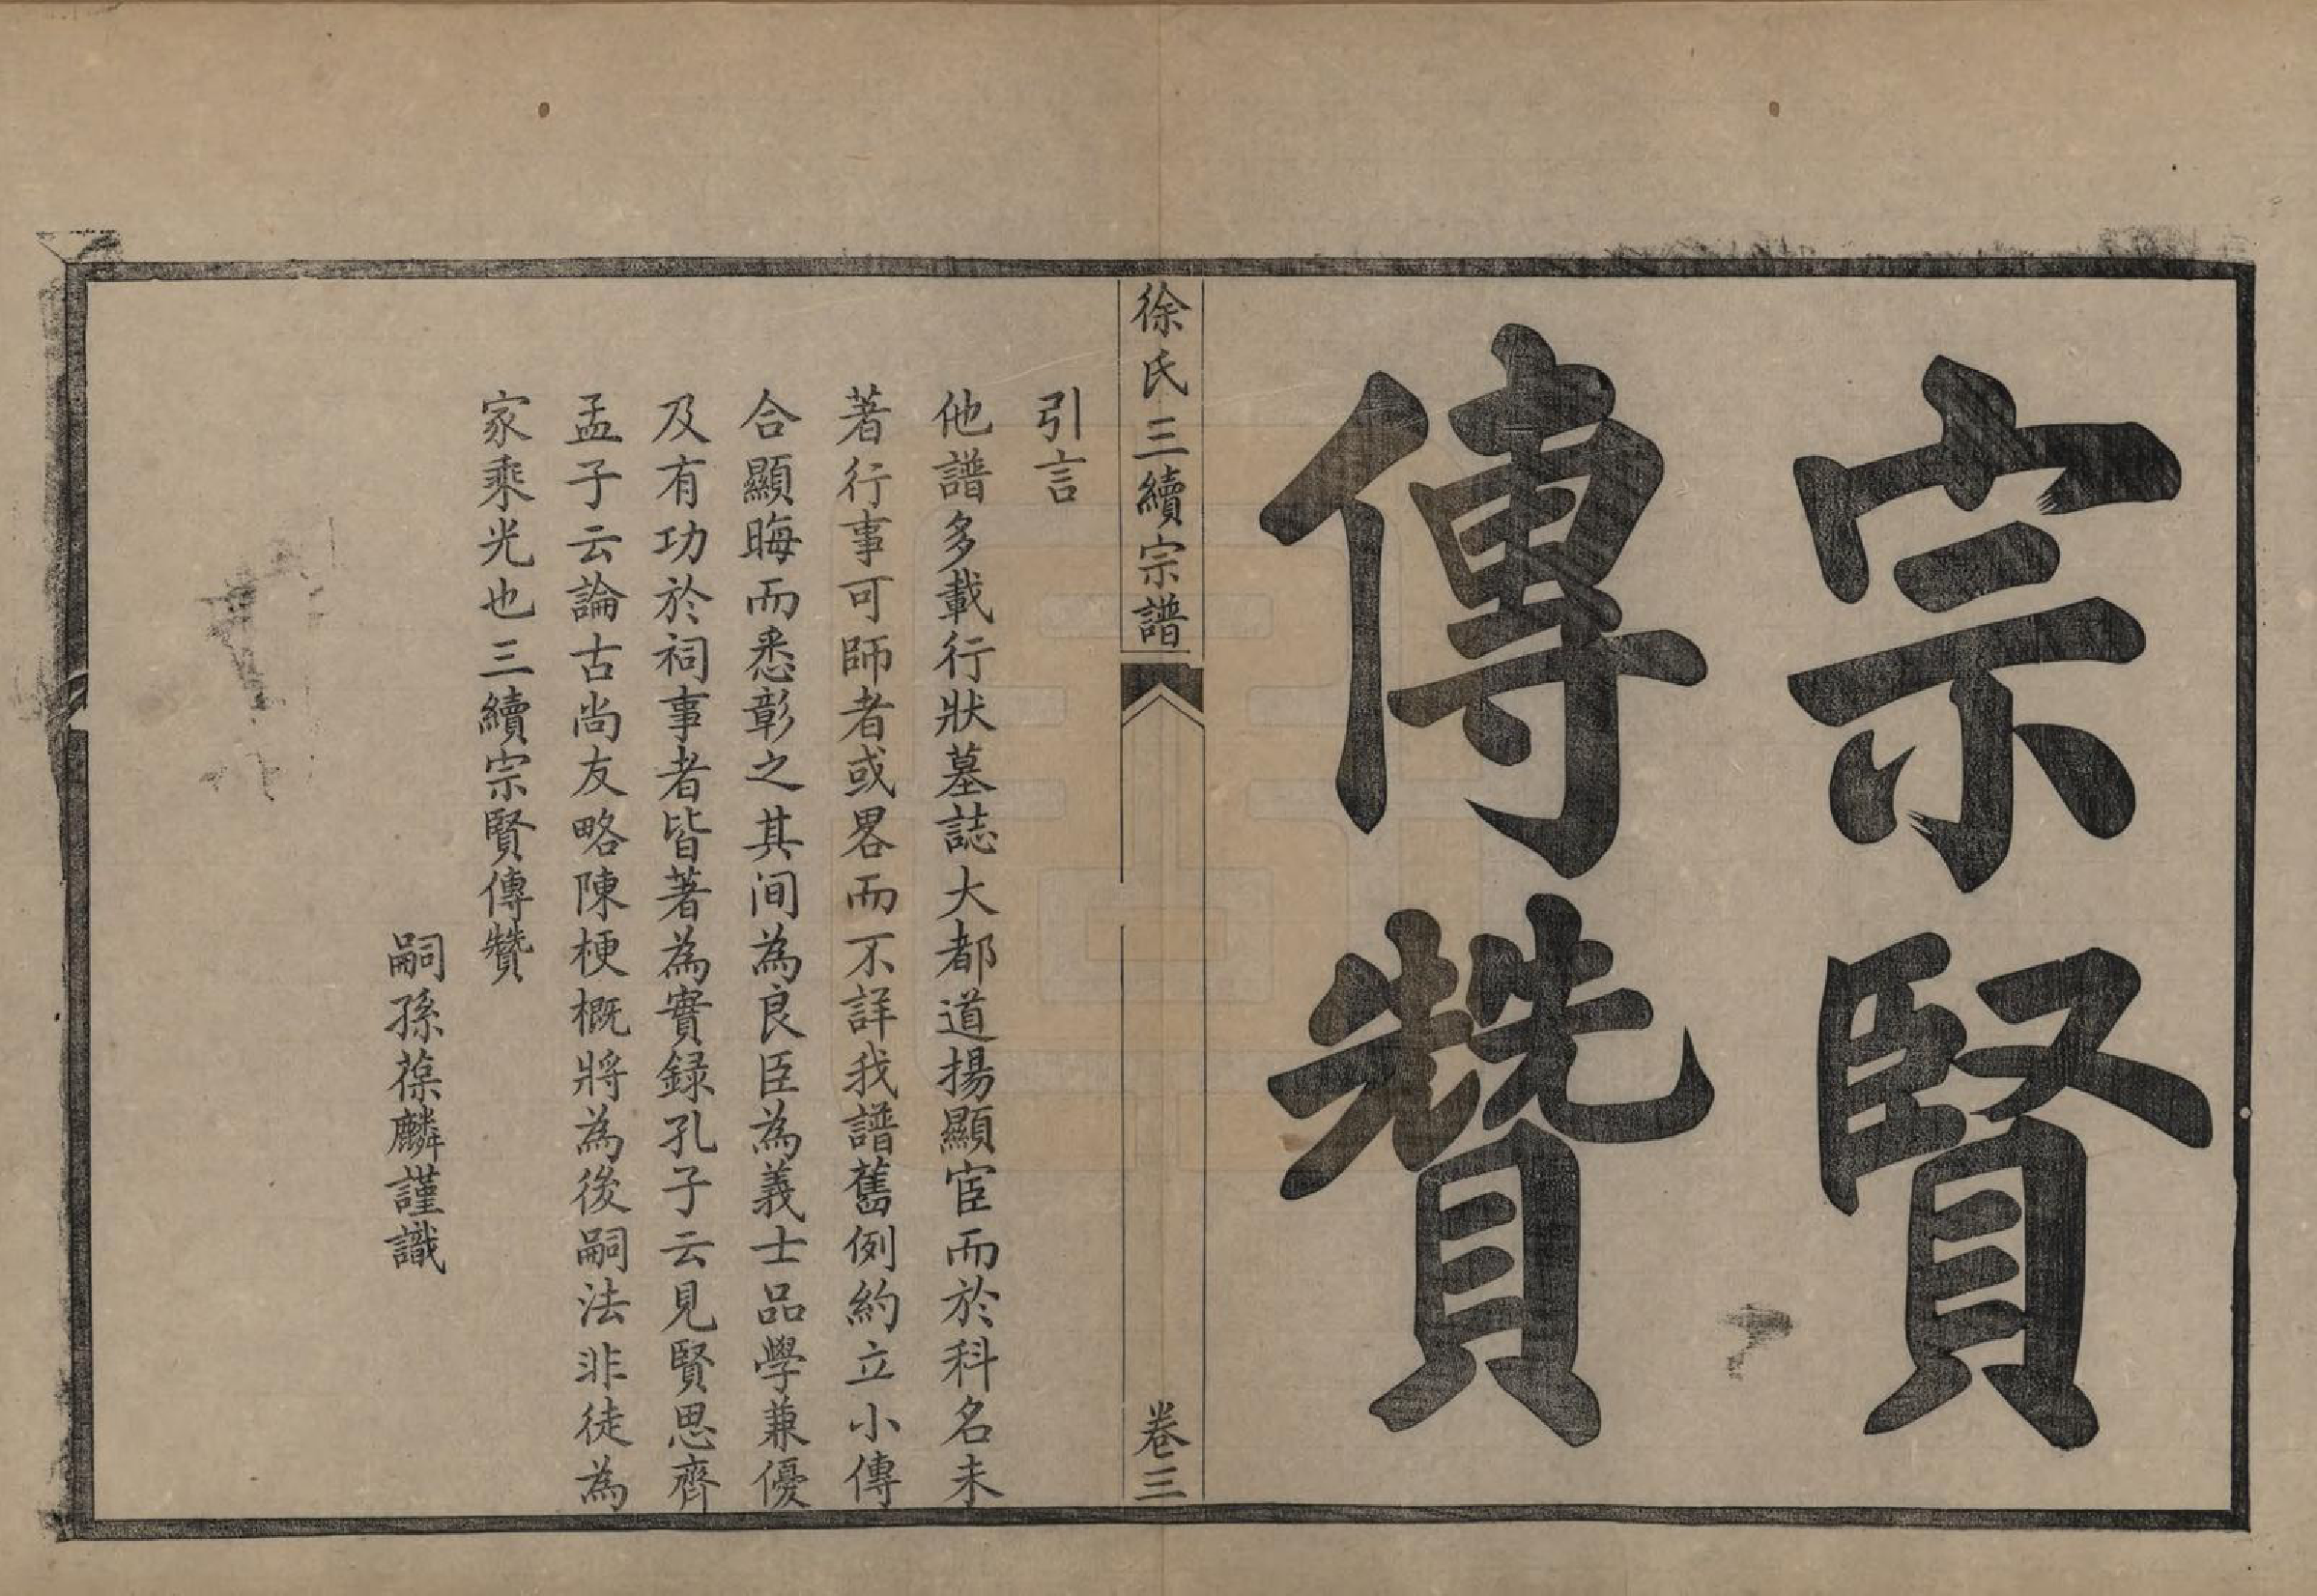 宗賢
傳贊
徐氏三續宗譜
卷三
引言
他譜多載行狀墓誌大都道揚顯宦而於科名未
著行事可師者或畧而不詳我譜舊例約立小傳
合顯晦而悉彰之其间為良臣為義士品學兼優
及有功於祠事者皆著為實録孔子云見賢思齊
孟子云論古尚友略陳梗概將為後嗣法非徒為
家乘光也三續宗賢傳贊
嗣孫葆麟謹識